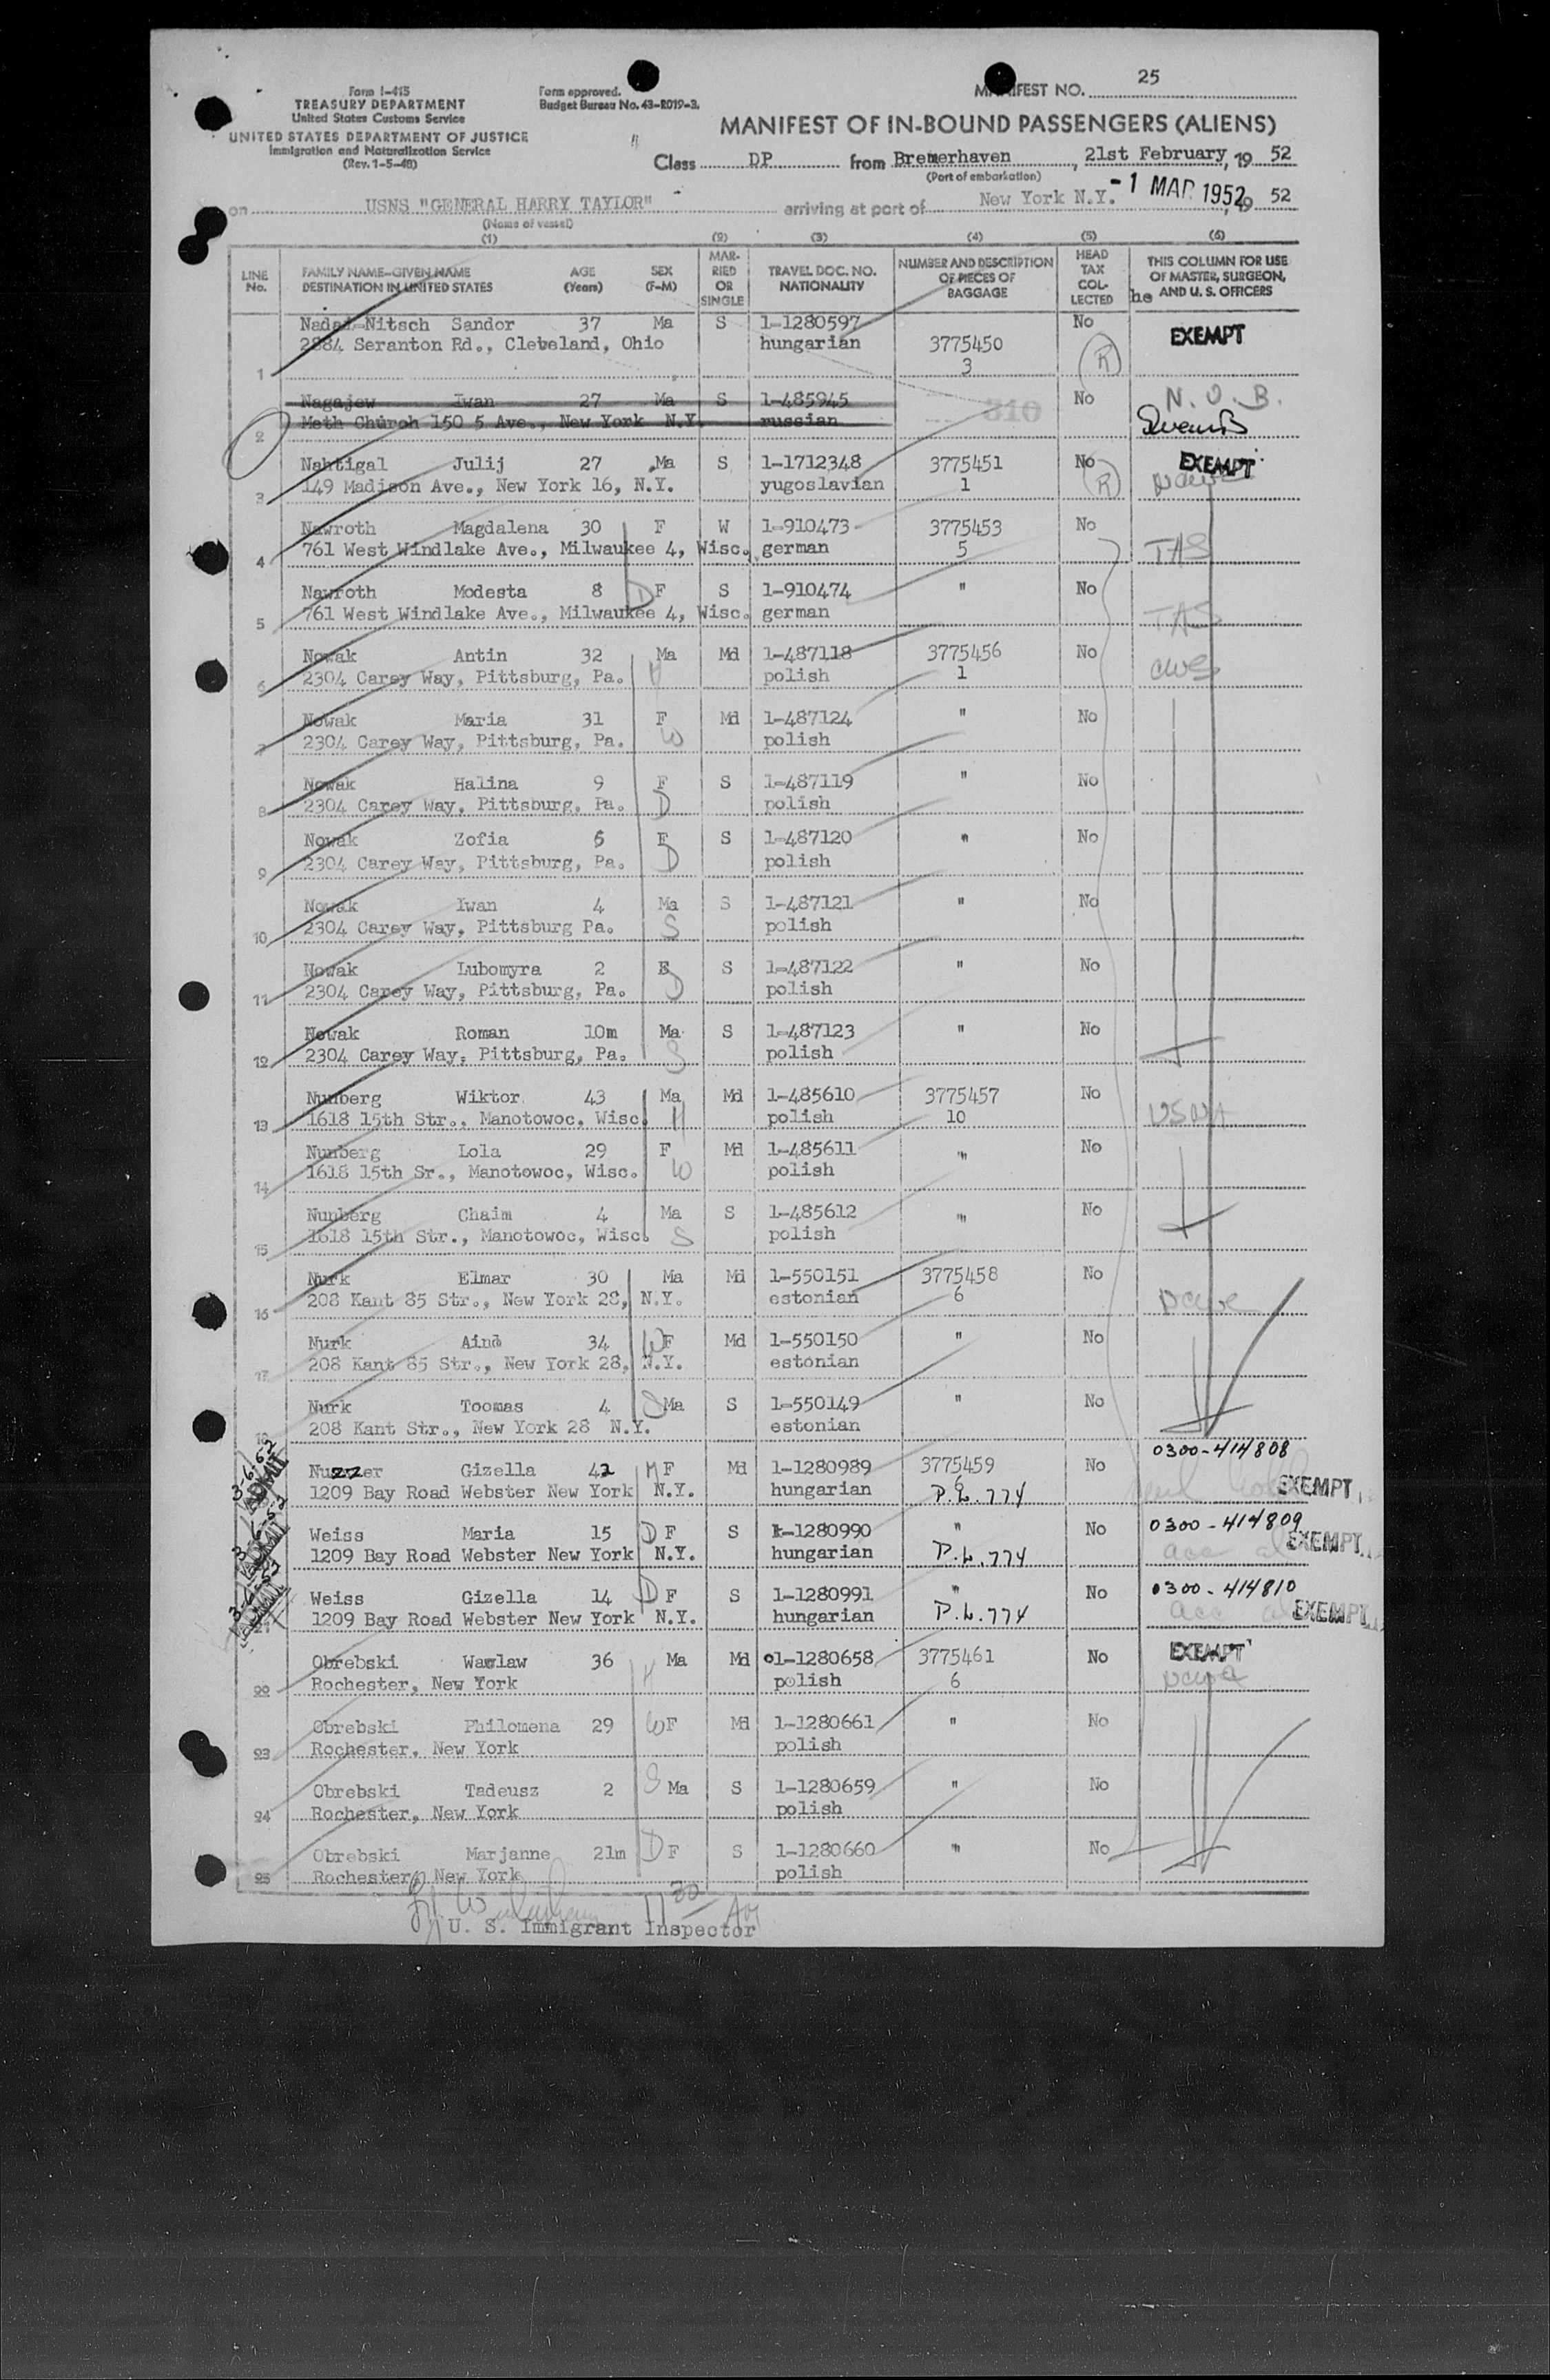 Form I-415
TREASURY DEPARTMENT
United States Customs Service
UNITED STATES DEPARTMENT OF JUSTICE
Immigration and Naturalization Service
(Rev. 1-5-48)
Form approved.
Budget Bureau No. 43-R019-3.
MANIFEST NO. 25
MANIFEST OF IN-BOUND PASSENGERS (ALIENS)
Class DP from Bremerhaven, 21st February, 19 52
(Port of embarkation)
on USNS "GENERAL HARRY TAYLOR" arriving at port of New York N.Y. -1 MAR 1952, 19 52
(Name of vessel)
(1) (2) (3) (4) (5) (6)
LINE No. FAMILY NAME—GIVEN NAME DESTINATION IN UNITED STATES AGE (Years) SEX (F-M) MARRIED OR SINGLE TRAVEL DOC. NO. NATIONALITY NUMBER AND DESCRIPTION OF PIECES OF BAGGAGE HEAD TAX COLLECTED THIS COLUMN FOR USE OF MASTER, SURGEON, AND U. S. OFFICERS
he
Nadai-Nitsch Sandor 37 Ma S 1-1280597 No EXEMPT
2884 Seranton Rd., Cleveland, Ohio hungarian 3775450
1 3 R
Nagajew Iwan 27 Ma S 1-485945 No N.O.B.
Meth Church 150 5 Ave., New York N.Y. russian 310
2
Nahtigal Julij 27 Ma S 1-1712348 3775451 No EXEMPT
3 149 Madison Ave., New York 16, N.Y. yugoslavian 1 R
Nawroth Magdalena 30 F W 1-910473 3775453 No
4 761 West Windlake Ave., Milwaukee 4, Wisc. german 5 TAS
Nawroth Modesta 8 D F S 1-910474 " No
5 761 West Windlake Ave., Milwaukee 4, Wisc. german TAS
Nowak Antin 32 Ma Md 1-487118 3775456 No
6 2304 Carey Way, Pittsburg, Pa. H polish 1 CWS
Nowak Maria 31 F Md 1-487124 " No
7 2304 Carey Way, Pittsburg, Pa. W polish
Nowak Halina 9 F S 1-487119 " No
8 2304 Carey Way, Pittsburg, Pa. D polish
Nowak Zofia 6 F S 1-487120 " No
9 2304 Carey Way, Pittsburg, Pa. D polish
Nowak Iwan 4 Ma S 1-487121 " No
10 2304 Carey Way, Pittsburg Pa. S polish
Nowak Lubomyra 2 F S 1-487122 " No
11 2304 Carey Way, Pittsburg, Pa. D polish
Nowak Roman 10m Ma S 1-487123 " No
12 2304 Carey Way, Pittsburg, Pa. S polish
Nunberg Wiktor 43 Ma Md 1-485610 3775457 No
13 1618 15th Str., Manotowoc, Wisc. H polish 10 USNA
Nunberg Lola 29 F Md 1-485611 " No
14 1618 15th Sr., Manotowoc, Wisc. W polish
Nunberg Chaim 4 Ma S 1-485612 " No
15 1618 15th Str., Manotowoc, Wisc. S polish
Nurk Elmar 30 Ma Md 1-550151 3775458 No
16 208 Kant 85 Str., New York 28, N.Y. estonian 6
Nurk Aino 34 W F Md 1-550150 " No
17 208 Kant 85 Str., New York 28, N.Y. estonian
Nurk Toomas 4 S Ma S 1-550149 " No
18 208 Kant Str., New York 28 N.Y. estonian
3-6-52 ADMIT 0300-414808
Nuzzer Gizella 42 M F Md 1-1280989 3775459 No
1209 Bay Road Webster New York N.Y. hungarian 6 P.L.774 EXEMPT
3-6-52 ADMIT Weiss Maria 15 D F S 1-1280990 " No 0300-414809
1209 Bay Road Webster New York N.Y. hungarian P.L.774 EXEMPT
3-6-52 ADMIT Weiss Gizella 14 D F S 1-1280991 " No 0300-414810
21 1209 Bay Road Webster New York N.Y. hungarian P.L.774 EXEMPT
Obrebski Wawlaw 36 Ma Md 1-1280658 3775461 No EXEMPT
22 Rochester, New York H polish 6
Obrebski Philomena 29 W F Md 1-1280661 " No
23 Rochester, New York polish
Obrebski Tadeusz 2 S Ma S 1-1280659 " No
24 Rochester, New York polish
Obrebski Marjanne 21m D F S 1-1280660 " No
25 Rochester, New York polish
U. S. Immigrant Inspector